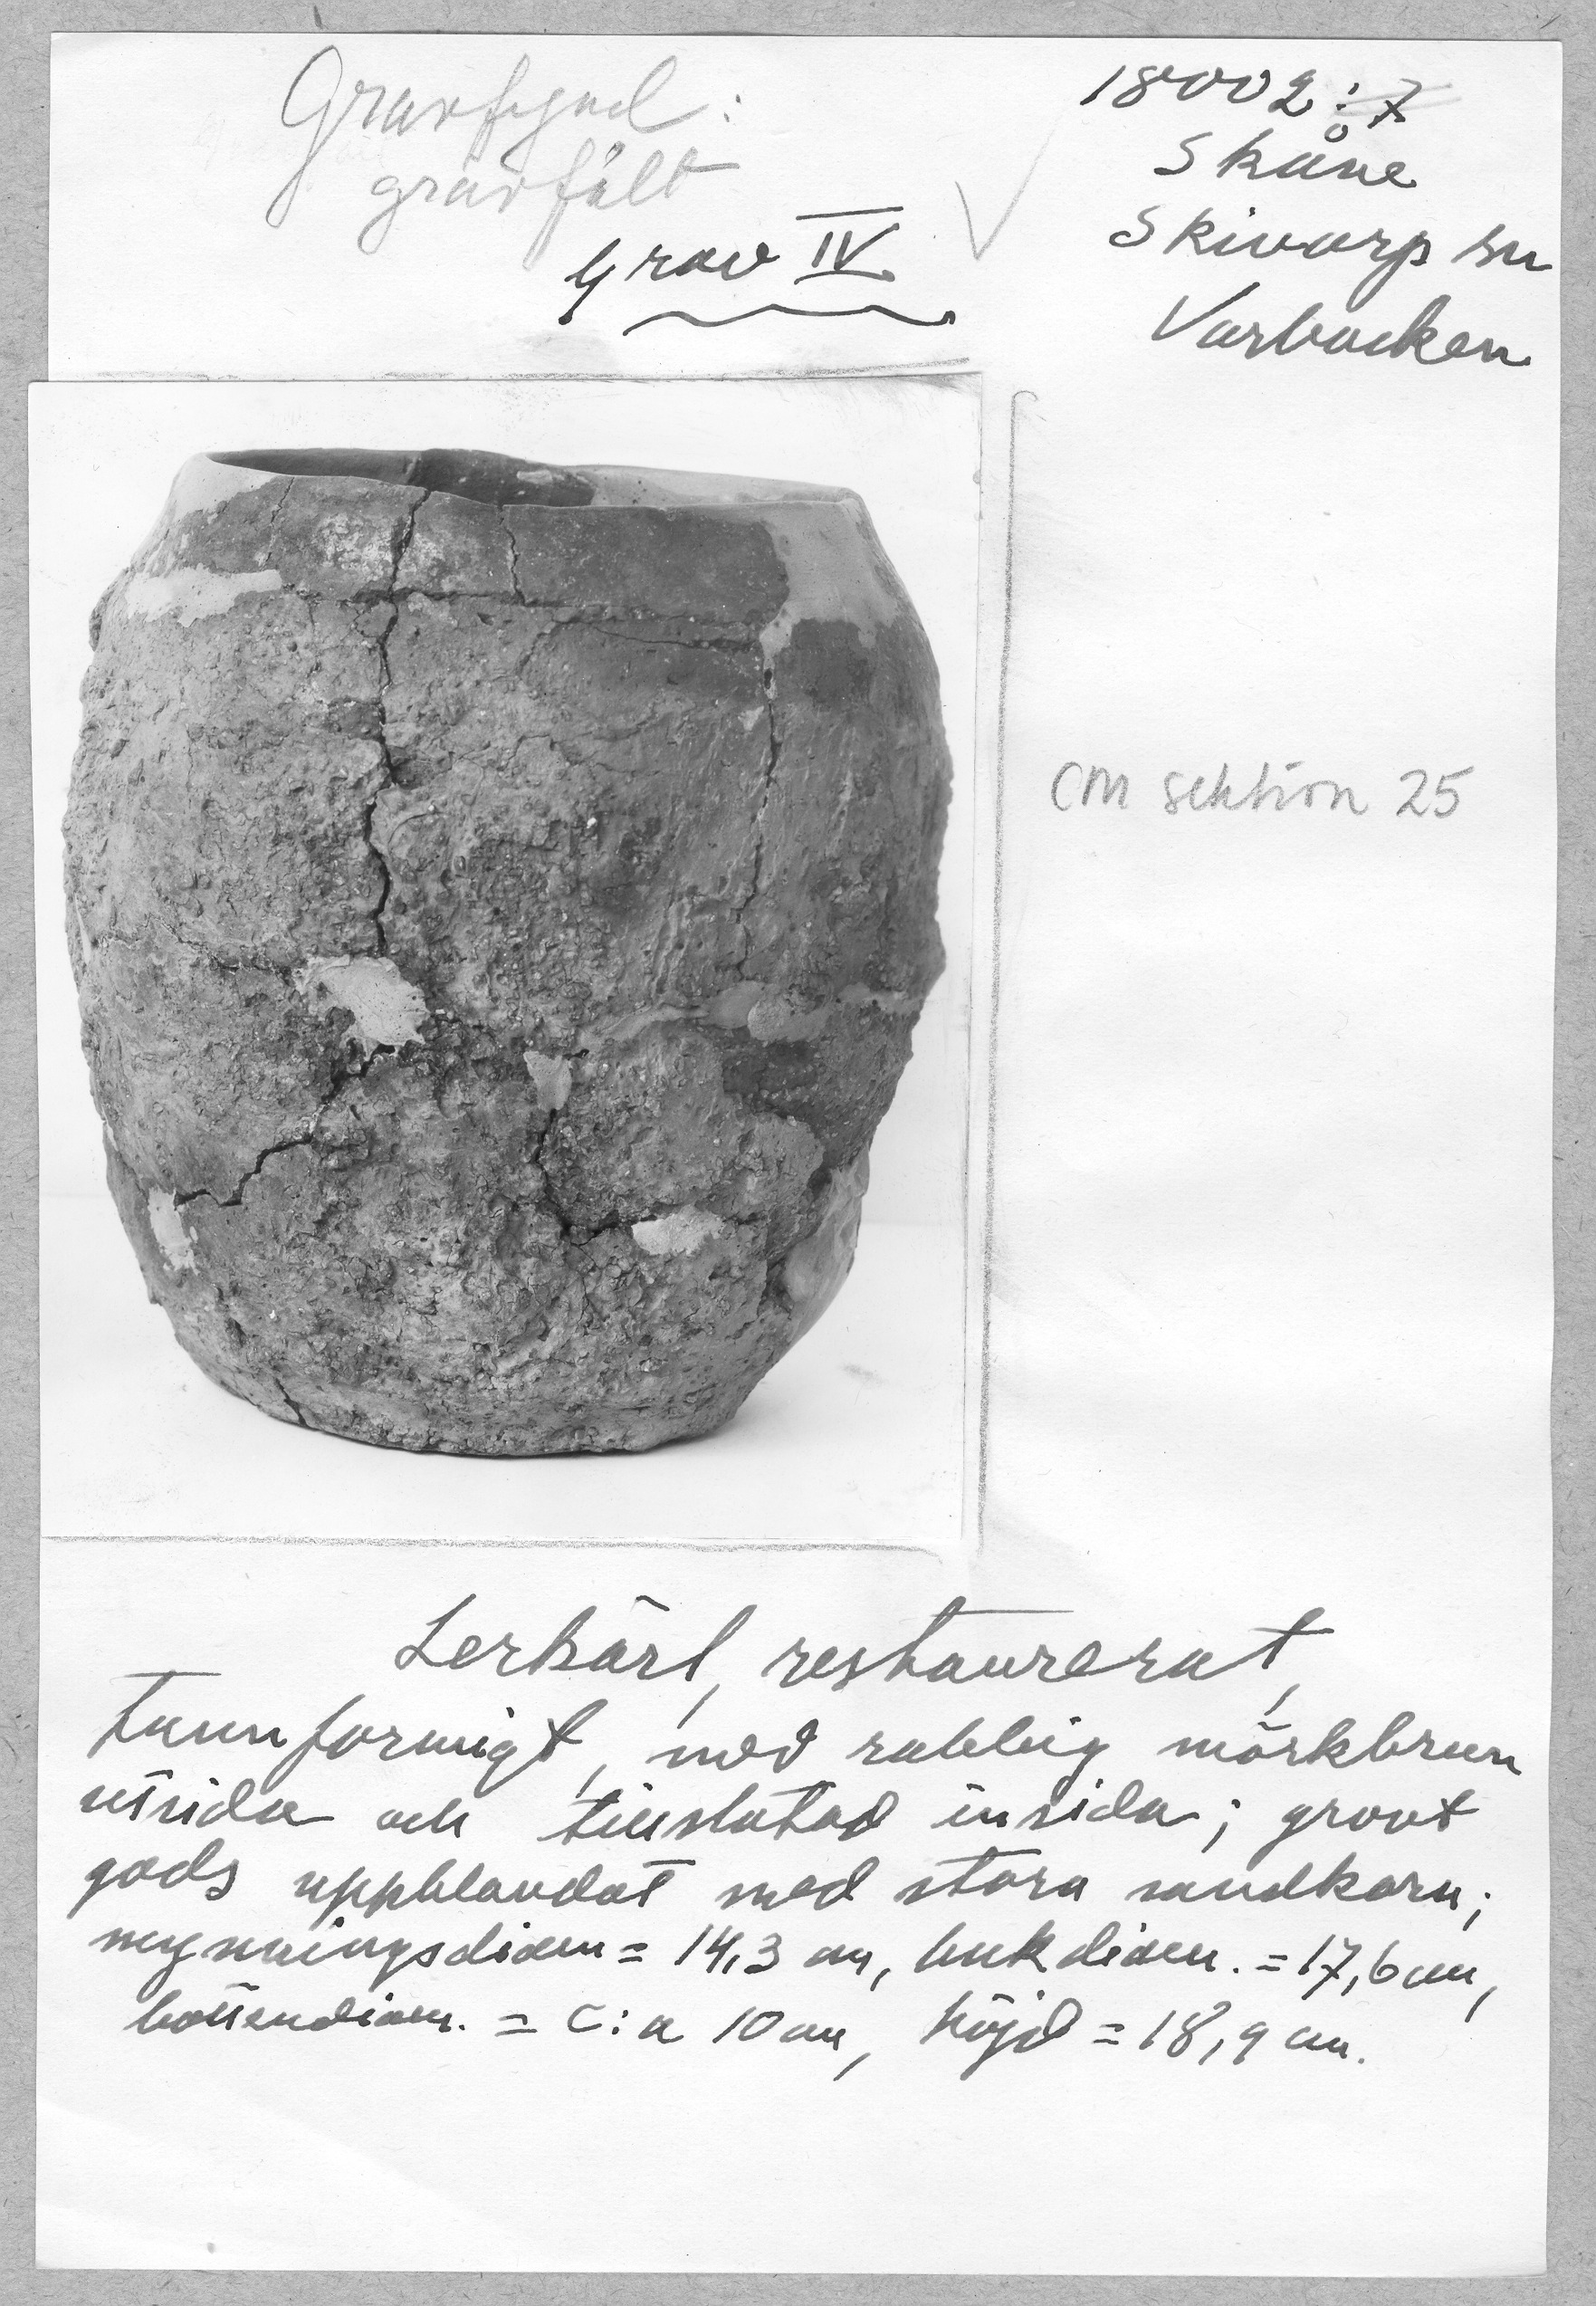 Gravfynd:
gravfält
Grav IV
18002:7
Skåne
Skivarp sn
Varbacken
CM sektion 25
Lerkärl, restaurerat,
tunnformigt, med rabbig mörkbrun
utsida och tillslätad insida; grovt
gods uppblandat med stora sandkorn;
mynningsdiam = 14,3 cm, bukdiam. = 17,6 cm,
bottendiam. = c:a 10 cm, höjd = 18,9 cm.